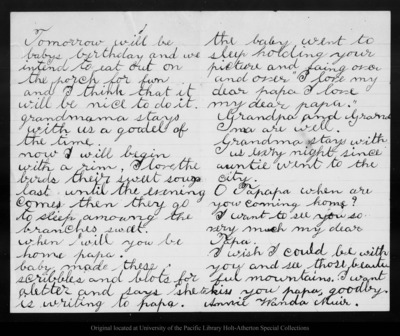 Tomorrow will be
babys birthday and we
intend to eat out on
the porch for fun
and I think that it
will be nice to do it.
grandmama stays
with us a goodel of
the time.
now I will begin
with a rim, I love the
birds their sweet songs
last until the evening
comes then they go
to sleep amowng the
branches sweet.
when will you be
home papa.
baby made these
scribbles and blots for
a letter and says shes
is writing to papa.
the baby went to
sleep holding your
picture and saing over
and over "I love my
dear papa I love
my dear papa."
Grandpa and Grand
ma are well.
Grandma stays with
us evry night since
auntie went to the
city.
O Papapa when are
you coming home?
I want to see you so
very much my dear
Papa.
I wish I could be with
you and see those beauti
ful mountains. I want
to kiss you papa, goodby.
Annie Wanda Muir.
Original located at University of the Pacific Library Holt-Atherton Special Collections